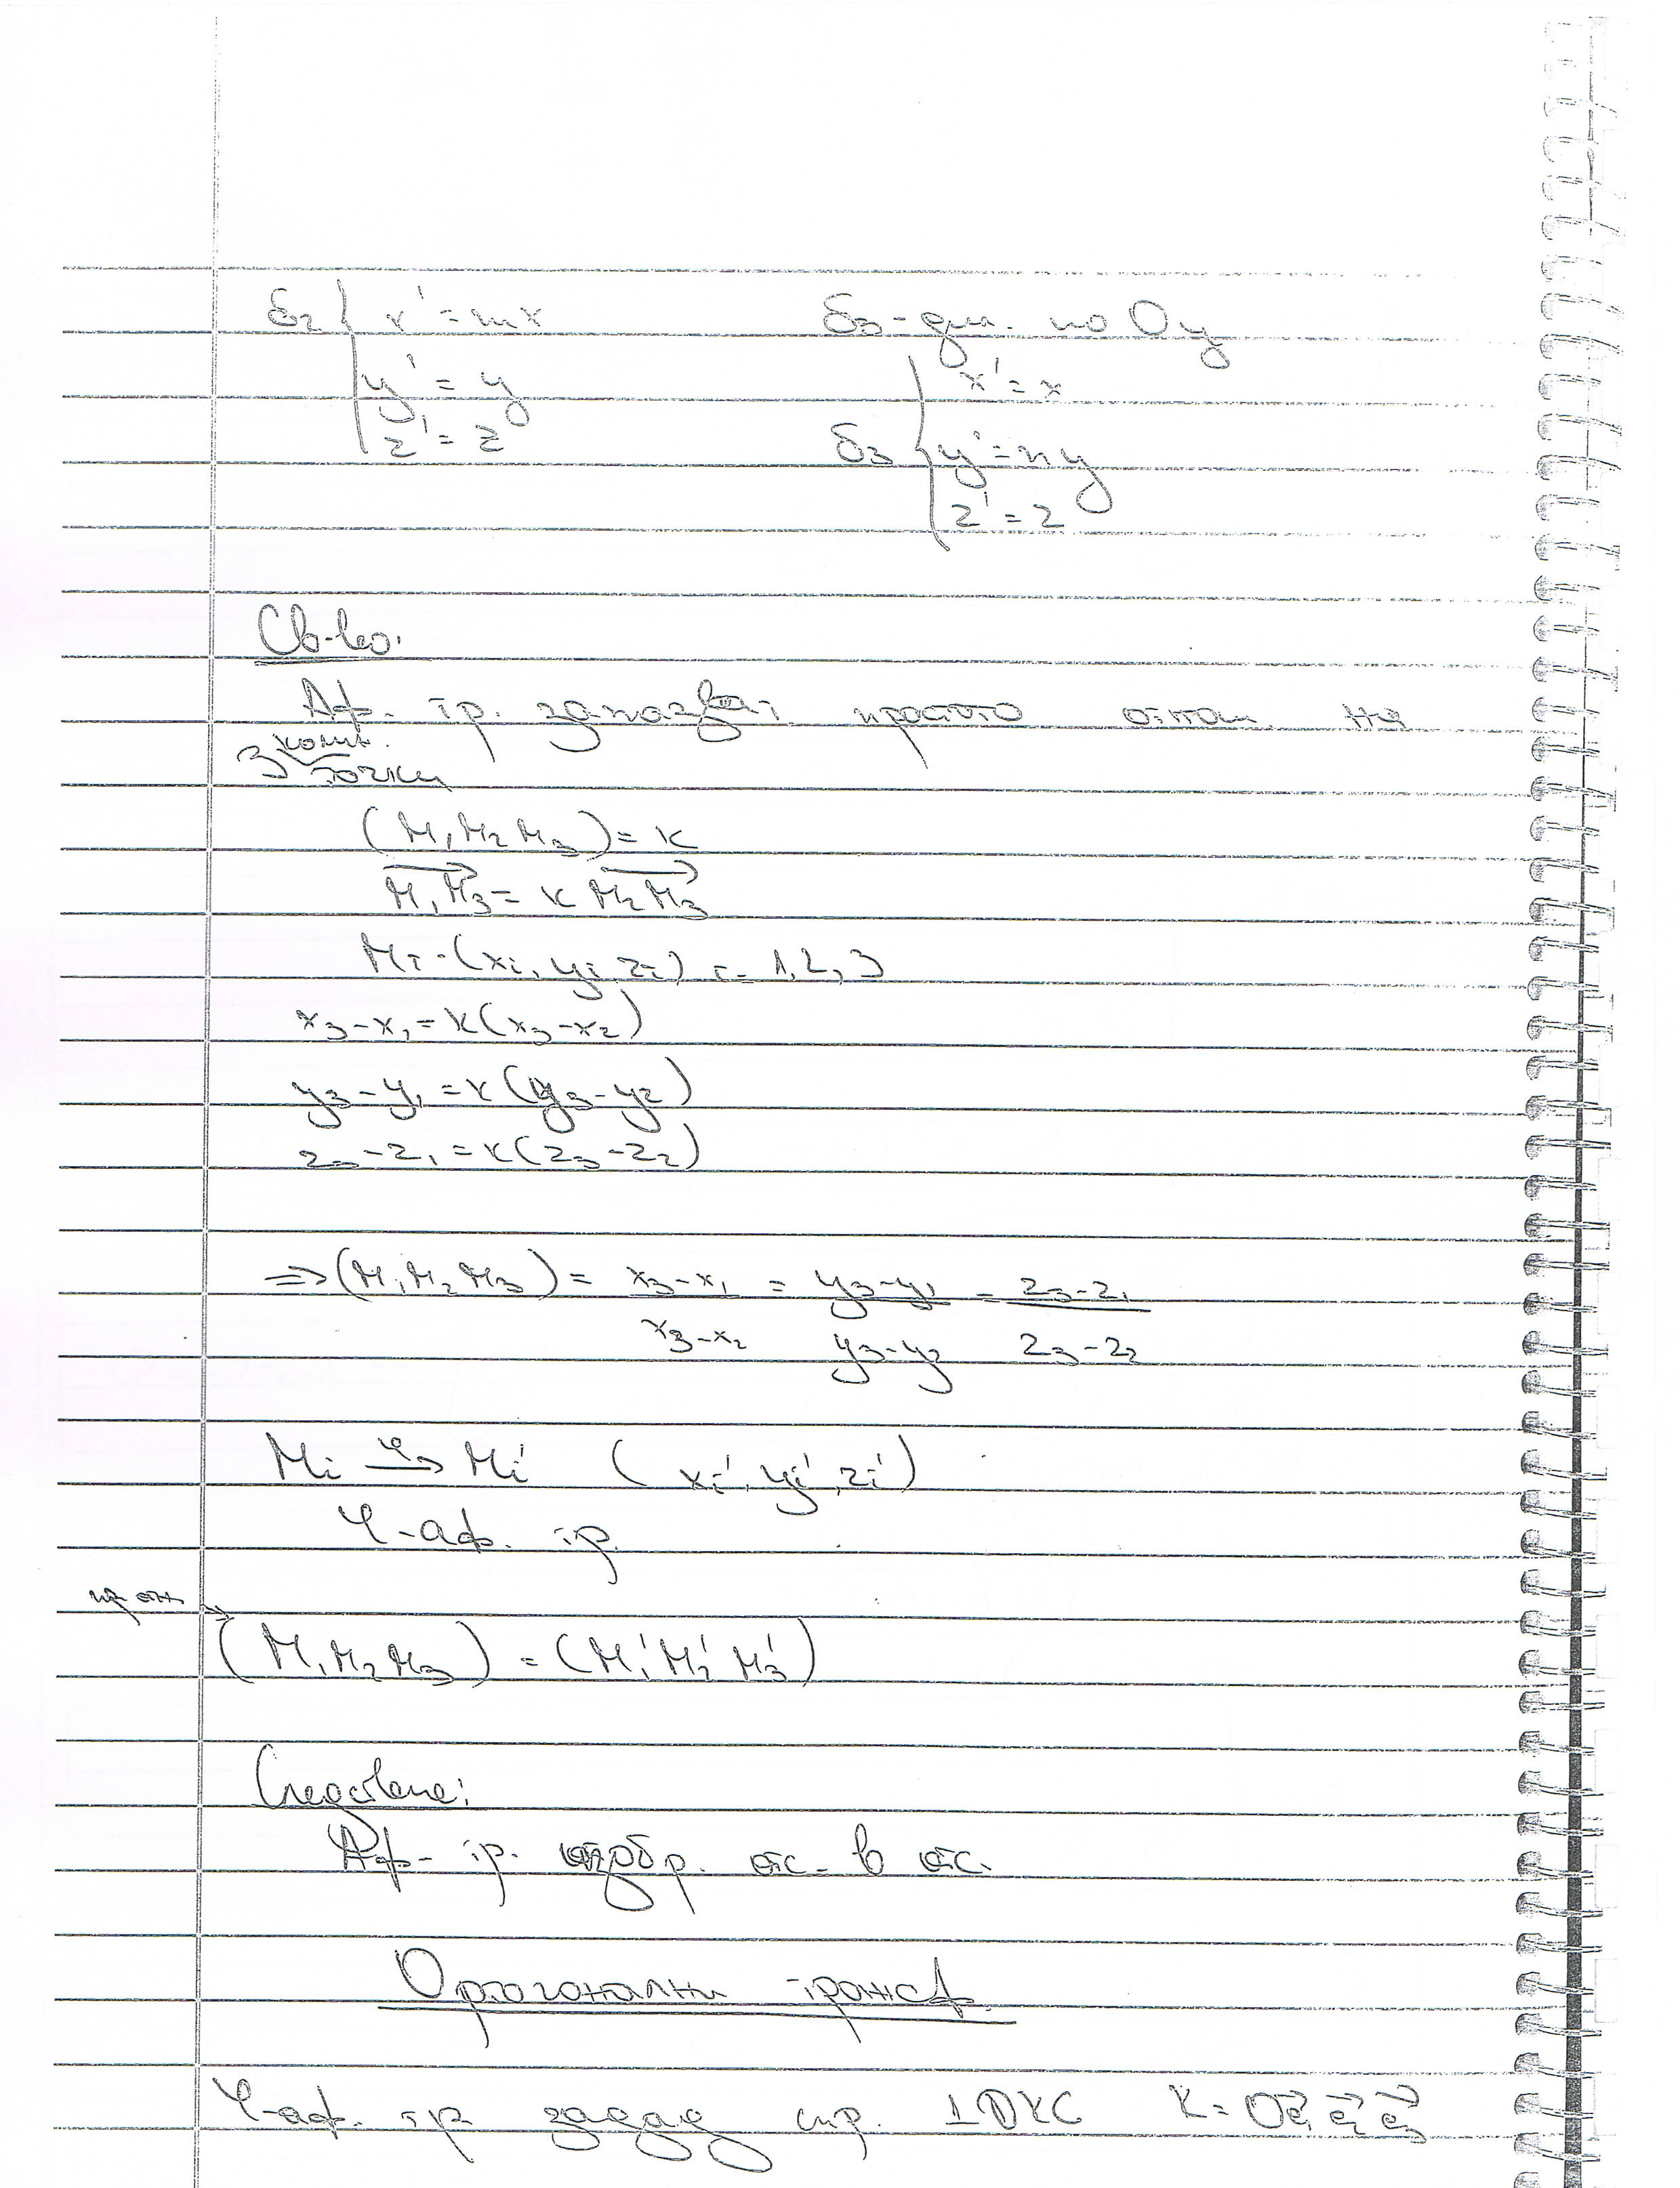 δ2 { x' = mx
y' = y
z' = z
δ3 - дил. по Oy
x' = x
δ3 { y' = ny
z' = z
Св-во.
Аф. тр. запазват простото отнош. на
3 колин. точки
(M1M2M3) = k
M1M3 = k M2M3
Mi (xi, yi, zi) i = 1, 2, 3
x3 - x1 = k(x3 - x2)
y3 - y1 = k(y3 - y2)
z3 - z1 = k(z3 - z2)
=> (M1M2M3) = (x3 - x1)/(x3 - x2) = (y3 - y1)/(y3 - y2) = (z3 - z1)/(z3 - z2)
Mi φ→ Mi' (xi', yi', zi')
φ - аф. тр.
(M1M2M3) = (M1'M2'M3')
Следствие:
Аф. тр. изобр. отс. в отс.
Ортогонални трансф.
φ - аф. тр. зададе спр. ⊥ DKC K = Oe1e2e3